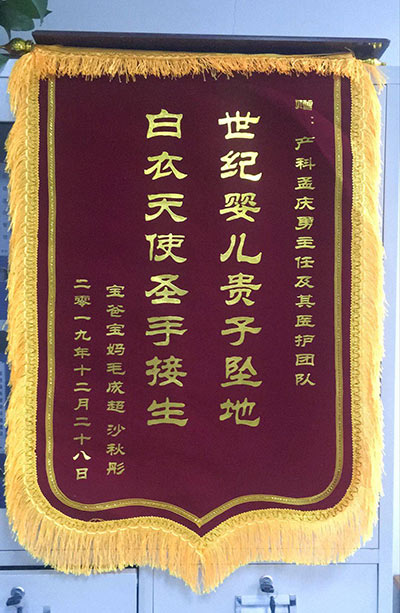 赠：产科孟庆勇主任及其医护团队
世纪婴儿贵子坠地
白衣天使圣手接生
宝爸宝妈毛成超 沙秋彤
二零一九年十二月二十八日